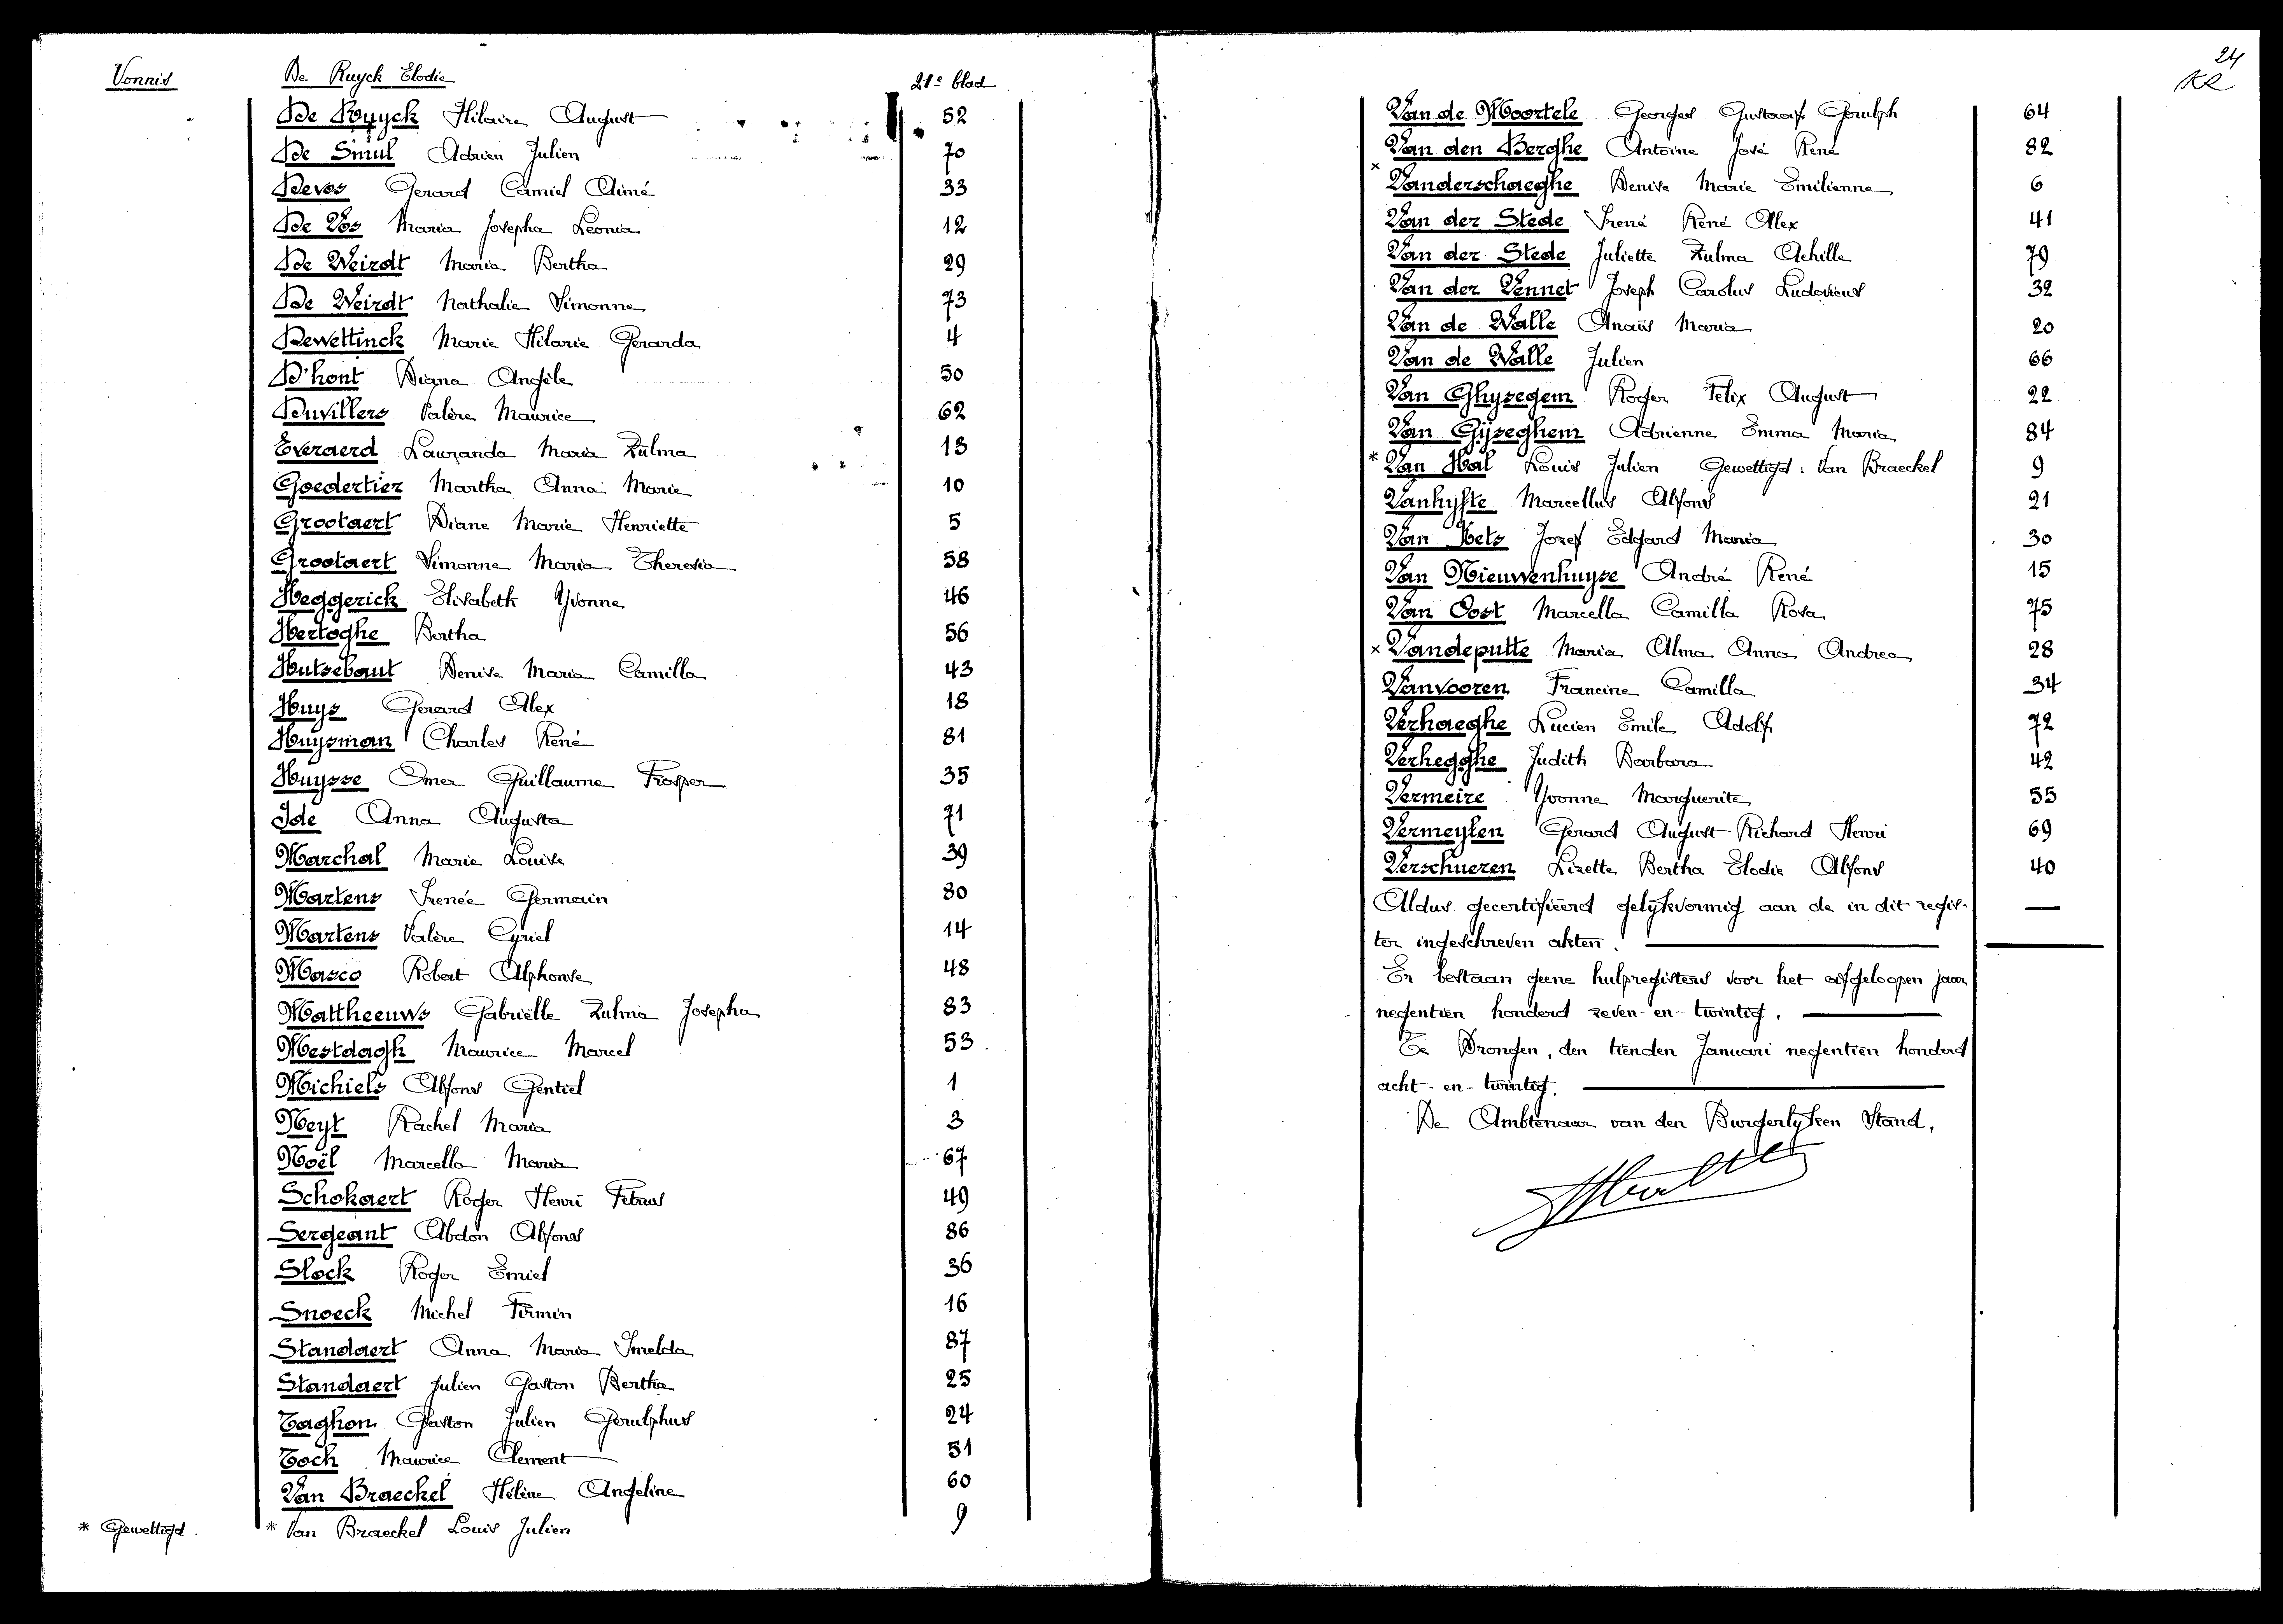 Vonnis De Ruyck Elodie 21e blad
De Ruyck Hilaire August 52
De Smul Adrien Julien 70
Devos Gerard Camiel Aimé 33
De Vos Maria Josepha Leonia 12
De Weirdt Maria Bertha 29
De Weirdt Nathalie Simonne 73
Dewettinck Marie Hilarie Gerarda 4
D'hont Diana Angèle 50
Duvillers Valère Maurice 62
Everaerd Lauranda Maria Zulma 13
Goedertier Martha Anna Marie 10
Grootaert Diane Marie Henriette 5
Grootaert Simonne Maria Theresia 58
Heggerick Elisabeth Yvonne 46
Hertoghe Bertha 56
Hutsebaut Denise Maria Camilla 43
Huys Gerard Alex 18
Huysman Charles René 81
Huysse Omer Guillaume Prosper 35
Ide Anna Augusta 71
Marchal Marie Louise 39
Martens Irenée Germain 80
Martens Valère Cyriel 14
Masco Robert Alphonse 48
Mattheeuws Gabriëlle Zulma Josepha 83
Mestdagh Maurice Marcel 53
Michiels Alfons Gentiel 1
Neyt Rachel Maria 3
Noël Marcella Maria 67
Schokaert Roger Henri Petrus 49
Sergeant Abdon Alfons 86
Slock Roger Emiel 36
Snoeck Michel Firmin 16
Standaert Anna Maria Imelda 87
Standaert Julien Gaston Bertha 25
Taghon Gaston Julien Gerulphus 24
Tock Maurice Clement 51
Van Braeckel Hélène Angeline 60
* Gewettigd. * Van Braeckel Louis Julien 9
24
Van de Moortele Georges Gustaaf Gerulph 64
Van den Berghe Antoine José René 82
x Vanderschaeghe Denise Marie Emilienne 6
Van der Stede Irené René Alex 41
Van der Stede Juliette Zulma Achille 79
Van der Vennet Joseph Carolus Ludovicus 32
Van de Walle Anaïs Maria 20
Van de Walle Julien 66
Van Ghysegem Roger Felix August 22
Van Gijseghem Adrienne Emma Maria 84
* Van Hal Louis Julien Gewettigd: Van Braeckel 9
Vanhyfte Marcellus Alfons 21
Van Kets Jozef Edgard Maria 30
Van Nieuwenhuyse André René 15
Van Oost Marcella Camilla Rosa 75
x Vandeputte Maria Alma Anna Andrea 28
Vanvooren Francine Camilla 34
Verhaeghe Lucien Emile Adolf 72
Verhegghe Judith Barbara 42
Vermeire Yvonne Marguerite 55
Vermeylen Gerard August Richard Henri 69
Verschueren Lizette Bertha Elodie Alfons 40
Aldus gecertifiëerd gelykvormig aan de in dit regis-
ter ingeschreven akten.
Er bestaan geene hulpregisters voor het afgeloopen jaar
negentien honderd zeven-en-twintig.
Te Drongen, den tienden Januari negentien honderd
acht-en-twintig.
De Ambtenaar van den Burgerlyken Stand,